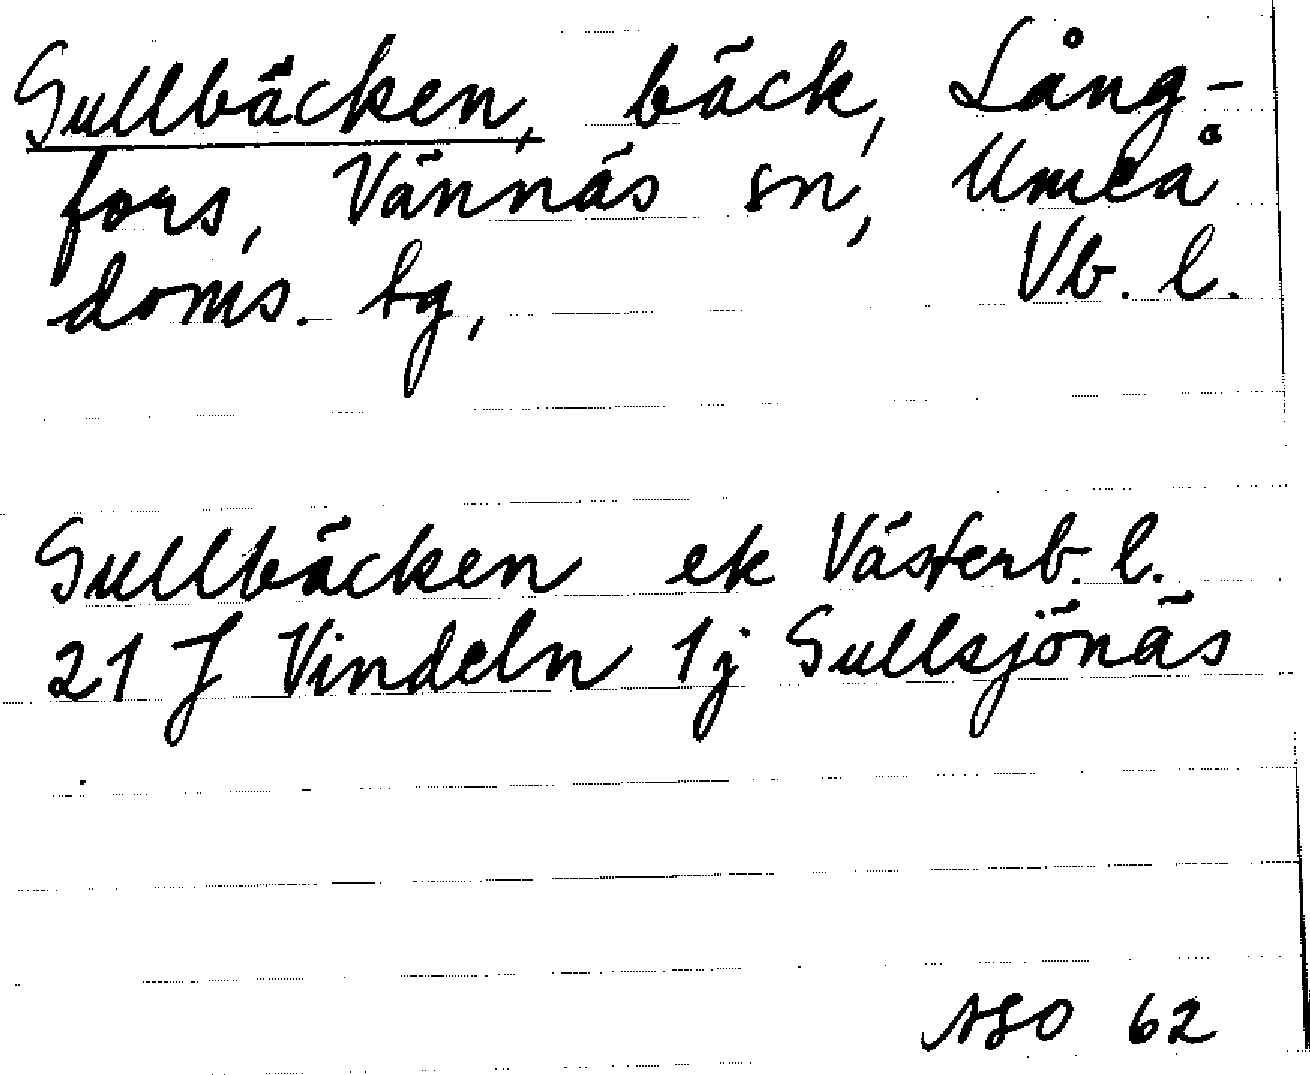 Sullbäcken, bäck, Lång-
fors, Vännäs sn, Umeå
doms. tg, Vb. l.
Sullbäcken ek Västerb. l.
21 J Vindeln 1j Sullsjönäs
ASO 62